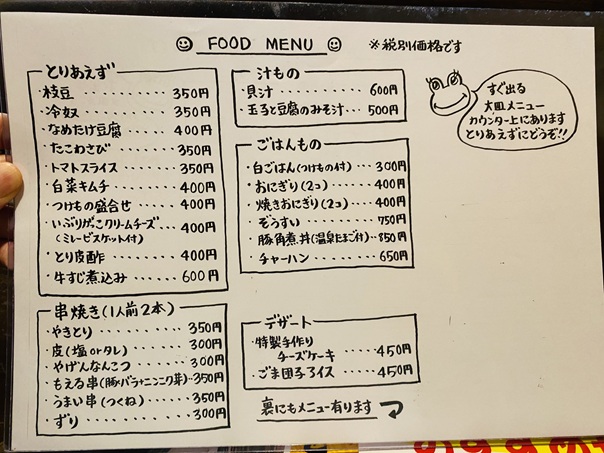 FOOD MENU
※税別価格です
とりあえず
・枝豆 ・・・・・・・・ 350円
・冷奴 ・・・・・・・・ 350円
・なめたけ豆腐 ・・・・ 400円
・たこわさび ・・・・・・ 350円
・トマトスライス ・・・・・ 350円
・白菜キムチ ・・・・・・ 400円
・つけもの盛合せ ・・・ 400円
・いぶりがっこクリームチーズ・・ 400円
(ミレービスケット付)
・とり皮酢 ・・・・・・・ 400円
・牛すじ煮込み ・・・・ 600円
串焼き(1人前2本)
・やきとり ・・・・・・・・ 350円
・皮(塩orタレ) ・・・・・ 300円
・やげんなんこつ ・・・・ 300円
・もえる串(豚バラ+ニンニク芽)・・350円
・うまい串(つくね) ・・・・ 350円
・ずり ・・・・・・・・・ 300円
汁もの
・貝汁 ・・・・・・・・ 600円
・玉子と豆腐のみそ汁・・・ 500円
ごはんもの
・白ごはん(つけもの付)・・・ 300円
・おにぎり(2コ) ・・・・・ 400円
・焼きおにぎり(2コ) ・・・ 400円
・ぞうすい ・・・・・・・・ 750円
・豚角煮丼(温泉たまご付)・・850円
・チャーハン ・・・・・・・ 650円
デザート
・特製手作り
チーズケーキ ・・・・・ 450円
・ごま団子アイス ・・・・ 450円
裏にもメニュー有ります
すぐ出る
大皿メニュー
カウンター上にあります
とりあえずにどうぞ!!